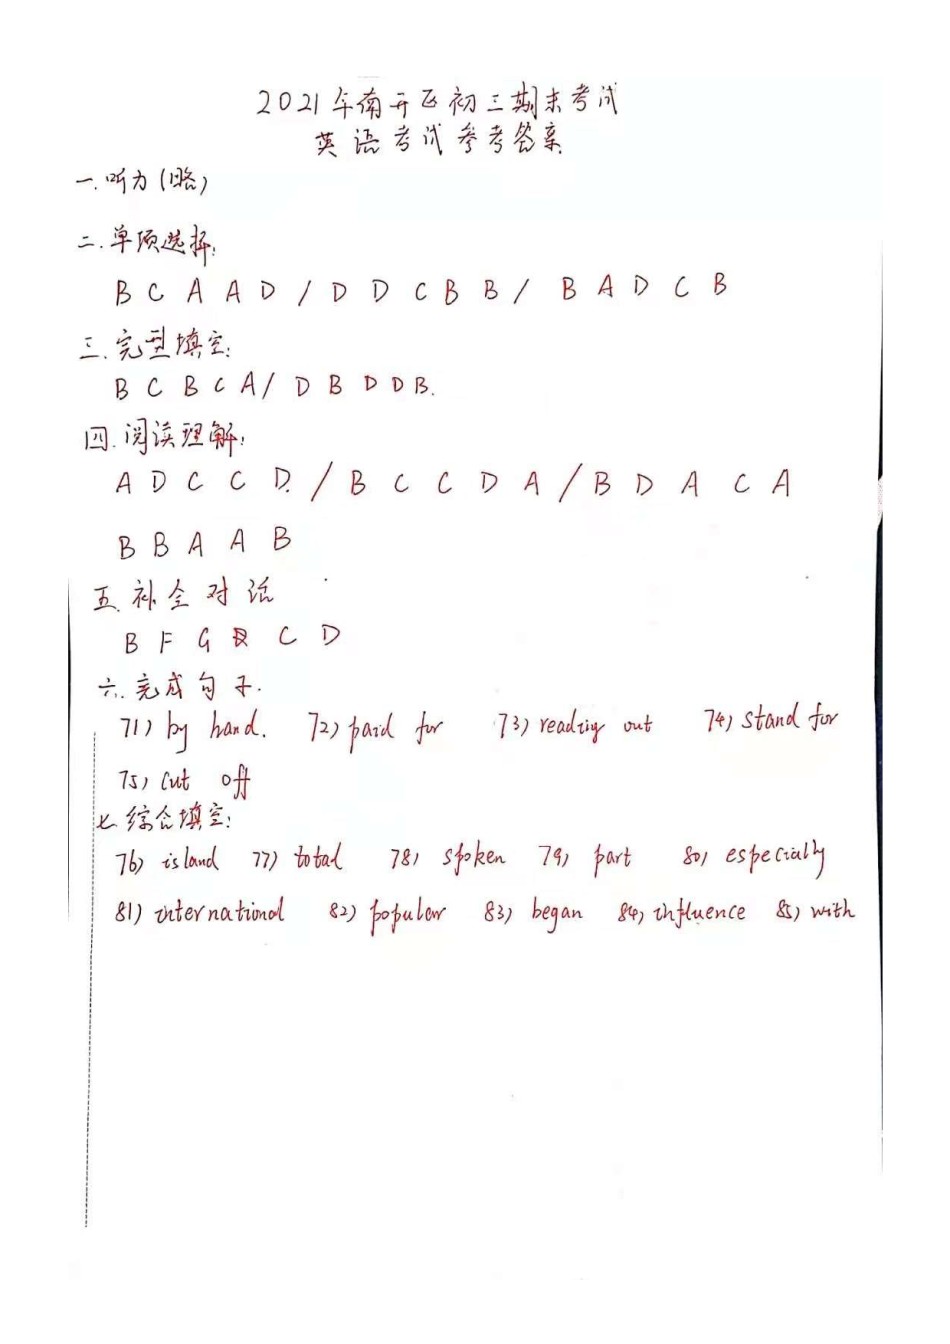 2021年南开区初三期末考试
英语考试参考答案
一.听力(略)
二.单项选择:
B C A A D / D D C B B / B A D C B
三.完型填空:
B C B C A / D B D D B.
四.阅读理解:
A D C C D. / B C C D A / B D A C A
B B A A B
五.补全对话
B F G C D
六.完成句子.
71) by hand. 72) paid for 73) reading out 74) stand for
75) cut off
七.综合填空:
76) island 77) total 78) spoken 79) part 80) especially
81) international 82) popular 83) began 84) influence 85) with